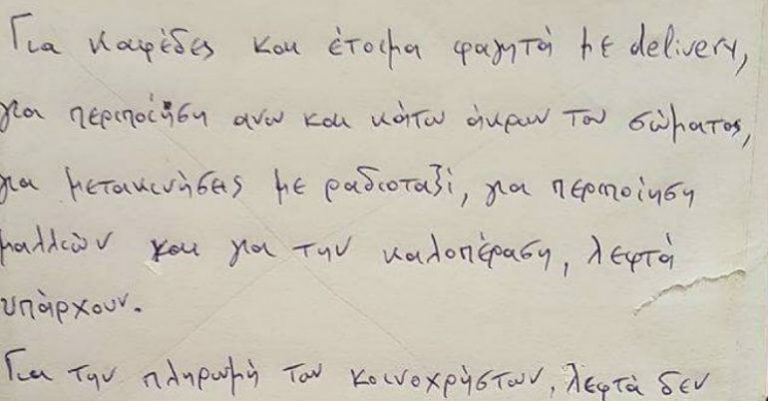 Για καφέδες και έτοιμα φαγητά με delivery,
για περιποίηση ανω και κάτω άκρων του σώματος,
για μετακινήσεις με ραδιοταξί, για περιποίηση
μαλλιών και για την καλοπέραση, λεφτά
υπάρχουν.
Για την πληρωμή των κοινοχρήστων, λεφτά δεν